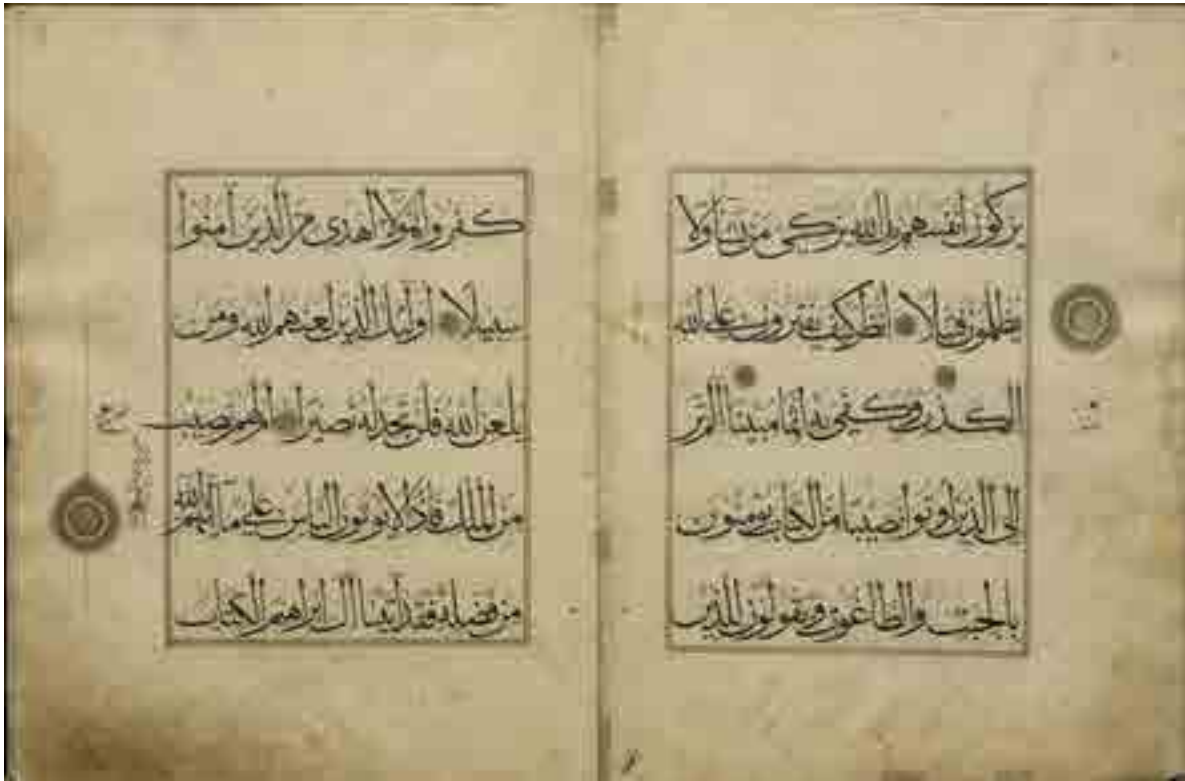 يزكون أنفسهم بل الله يزكي من يشاء ولا
يظلمون فتيلا انظر كيف يفترون على الله
الكذب وكفى به إثما مبينا ألم تر
إلى الذين أوتوا نصيبا من الكتاب يؤمنون
بالجبت والطاغوت ويقولون للذين
كفروا هؤلاء أهدى من الذين آمنوا
سبيلا أولئك الذين لعنهم الله ومن
يلعن الله فلن تجد له نصيرا أم لهم نصيب
من الملك فإذا لا يؤتون الناس على ما آتيهم الله
من فضله فقد آتينا آل ابراهيم الكتاب